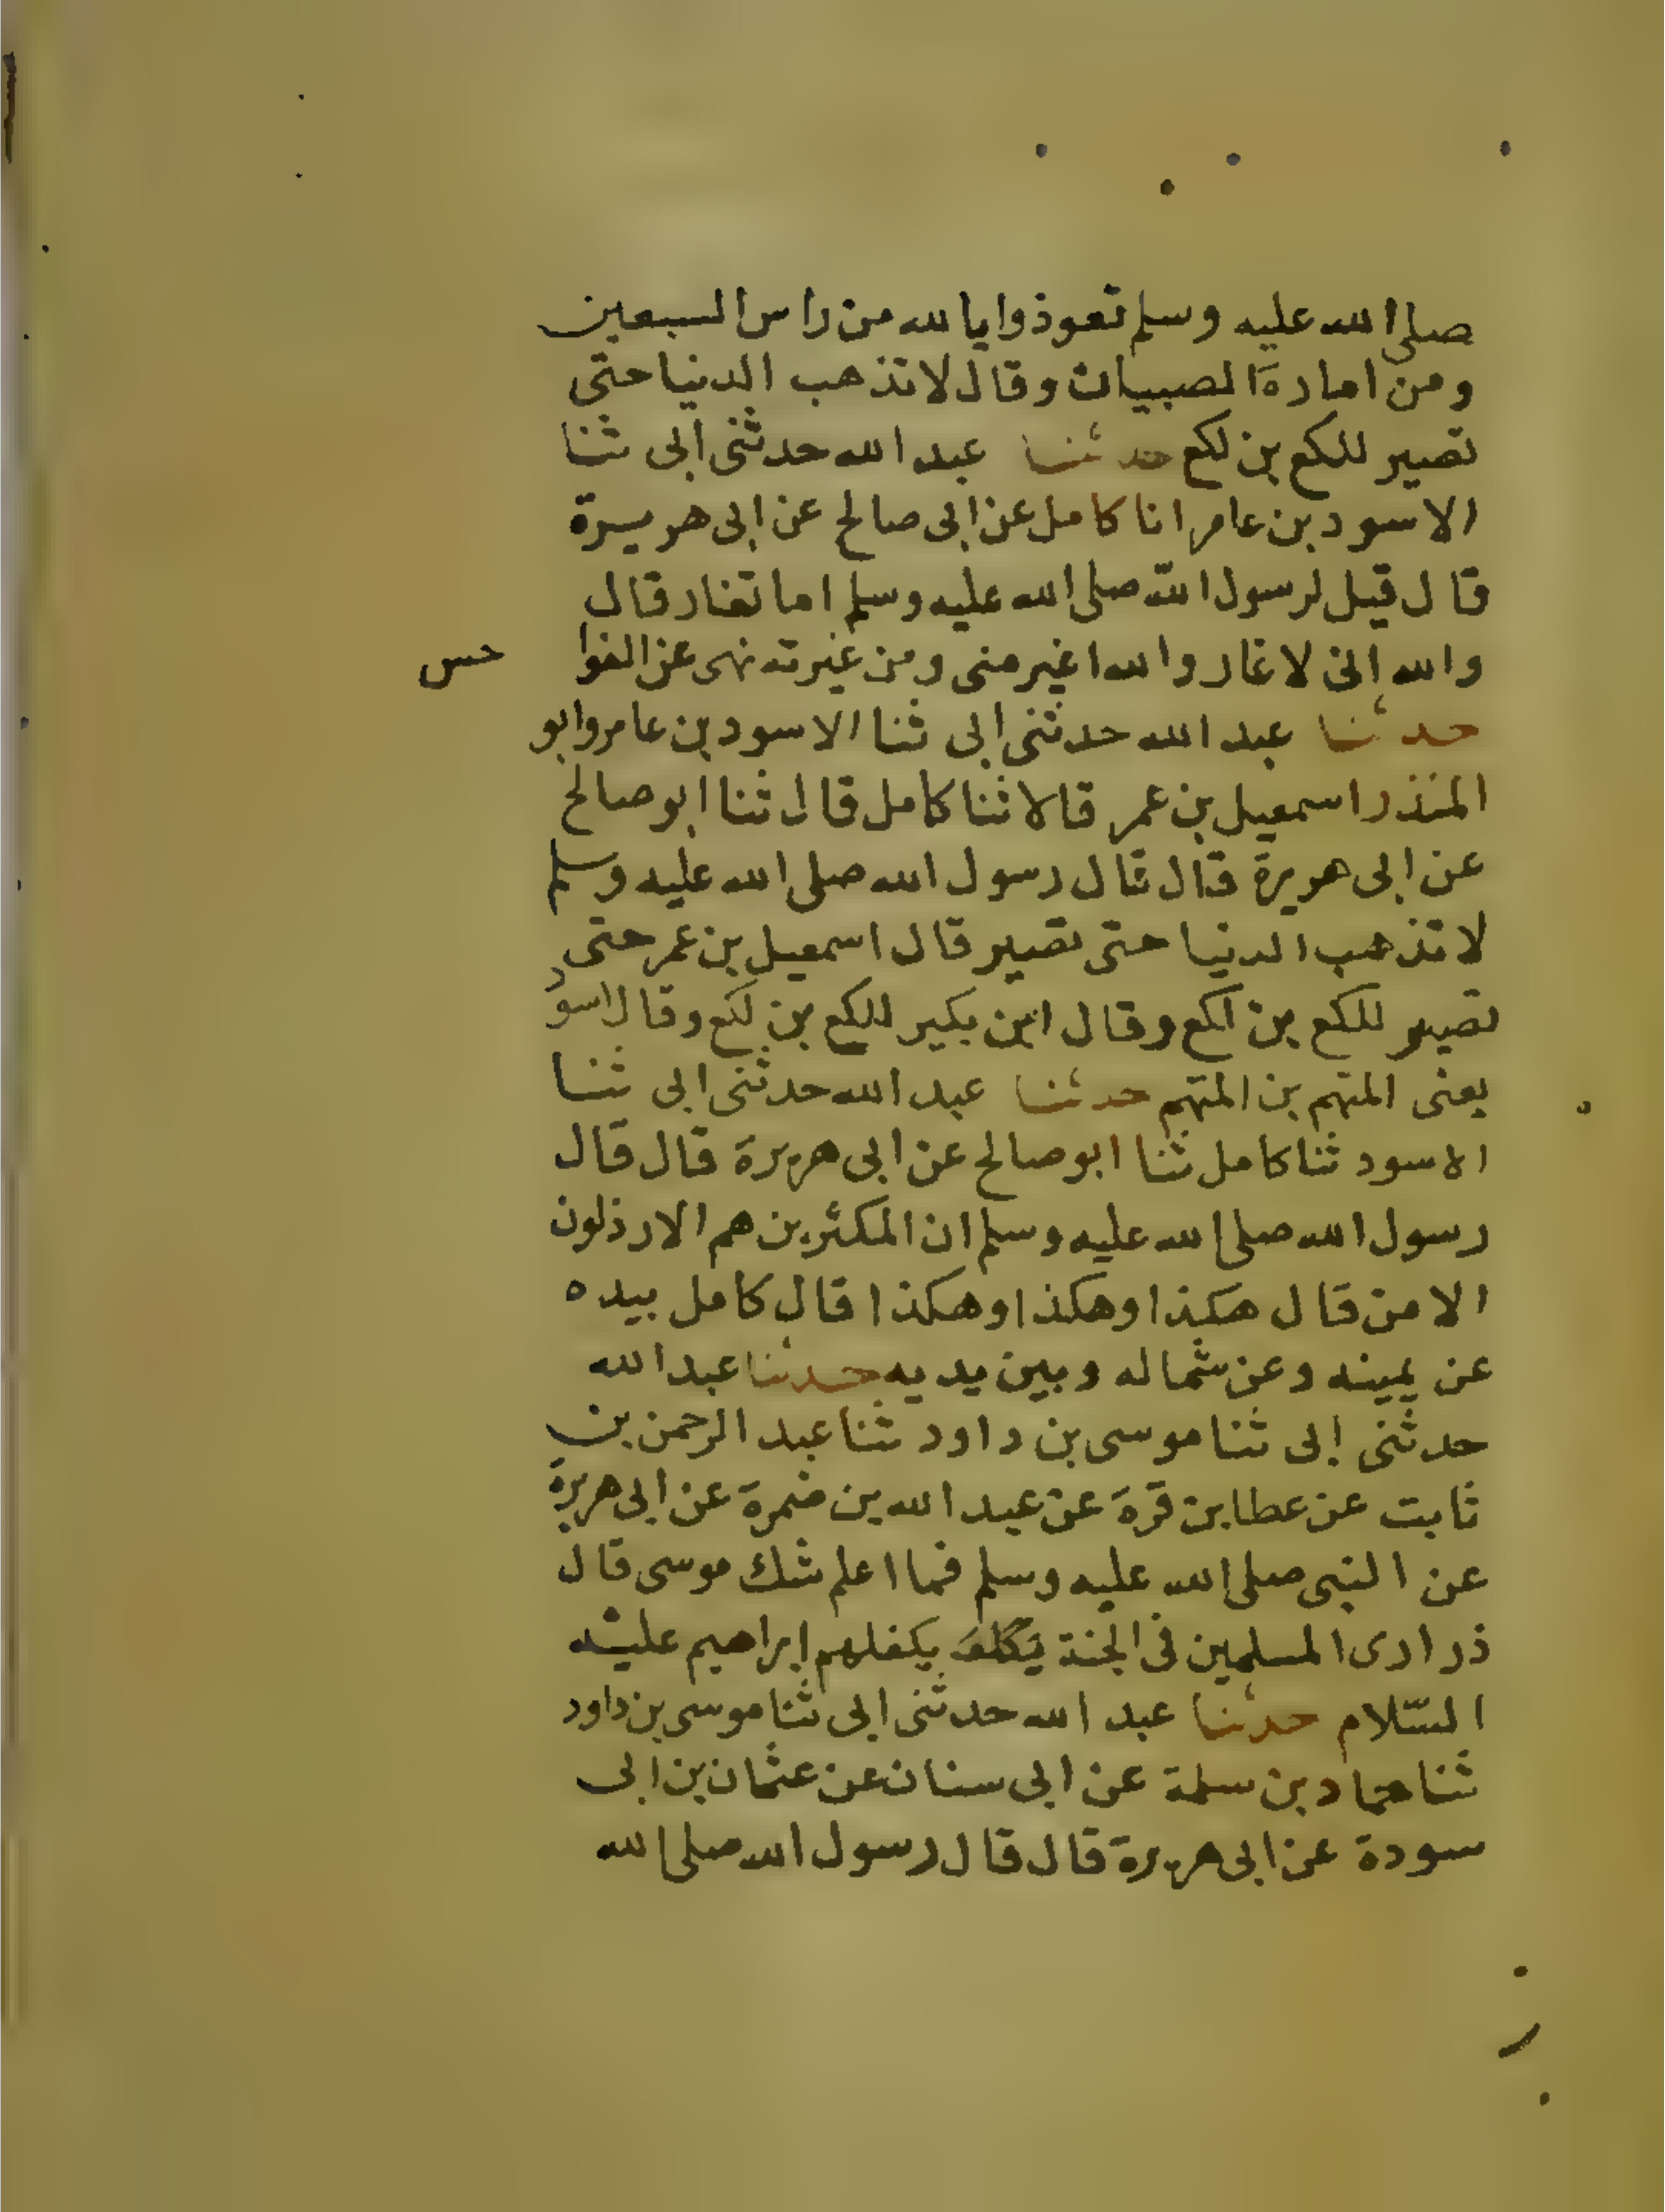 صلى الله عليه وسلم تعوذوا بالله من راس السبعين
ومن امارة الصبيان وقال لا تذهب الدنيا حتى
تصير للكع بن لكع حدثنا عبد الله حدثنى ابى ثنا
الاسود بن عامر انا كامل عن ابى صالح عن ابى هريرة
قال قيل لرسول الله صلى الله عليه وسلم اما تغار قال
والله انى لاغار والله اغير منى ومن غيرته نهى عن الفوا حس
حدثنا عبد الله حدثنى ابى ثنا الاسود بن عامر وابو
المنذر اسمعيل بن عمر قالا ثنا كامل قال ثنا ابو صالح
عن ابى هريرة قال قال رسول الله صلى الله عليه وسلم
لا تذهب الدنيا حتى تصير قال اسمعيل بن عمر حتى
تصير للكع بن لكع وقال ابن بكير للكع بن لكع وقال اسود
يعنى المتهم بن المتهم حدثنا عبد الله حدثنى ابى ثنا
الاسود ثنا كامل ثنا ابو صالح عن ابى هريرة قال قال
رسول الله صلى الله عليه وسلم ان المكثرين هم الارذلون
الا من قال هكذا وهكذا وهكذا قال كامل بيده
عن يمينه وعن شماله وبين يديه حدثنا عبد الله
حدثنى ابى ثنا موسى بن داود ثنا عبد الرحمن بن
ثابت عن عطا بن قرة عن عبد الله بن ضمرة عن ابى هريرة
عن النبى صلى الله عليه وسلم فما اعلم شك موسى قال
ذرارى المسلمين فى الجنة يكفلهم ابراهيم عليه
السّلام حدثنا عبد الله حدثنى ابى ثنا موسى بن داود
ثنا حماد بن سلمة عن ابى سنان عن عثمان بن ابى
سودة عن ابى هريرة قال قال رسول الله صلى الله